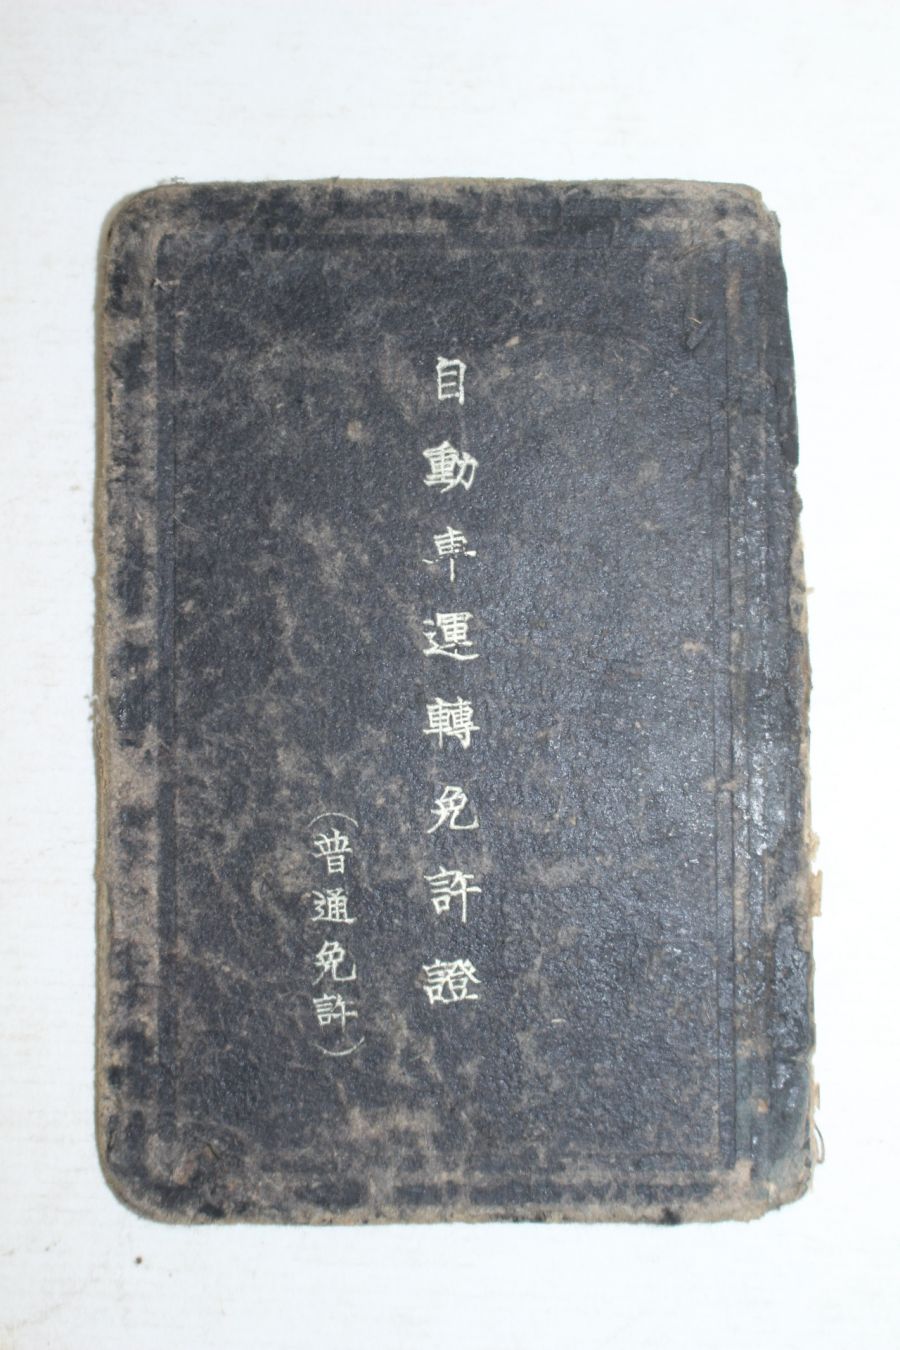 自動車運轉免許證
(普通免許)